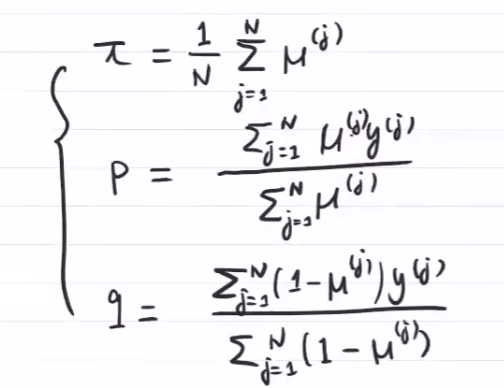 π = 1/N ∑_{j=1}^{N} μ^{(j)}
p = ∑_{j=1}^{N} μ^{(j)} y^{(j)} / ∑_{j=1}^{N} μ^{(j)}
q = ∑_{j=1}^{N} (1-μ^{(j)}) y^{(j)} / ∑_{j=1}^{N} (1-μ^{(j)})